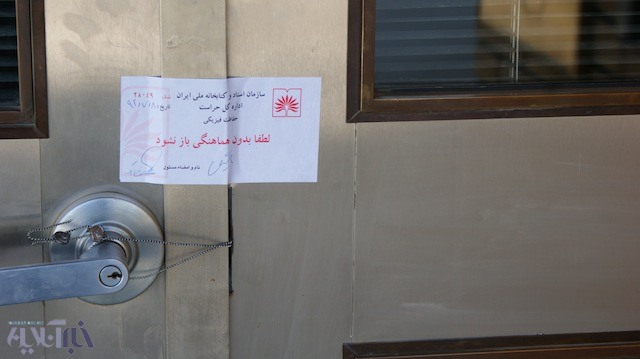 سازمان اسناد و کتابخانه ملی ایران
اداره کل حراست
حفاظت فیزیکی
تاریخ
لطفا بدون هماهنگی باز نشود
نام و امضاء مسئول
خبرآنلاین